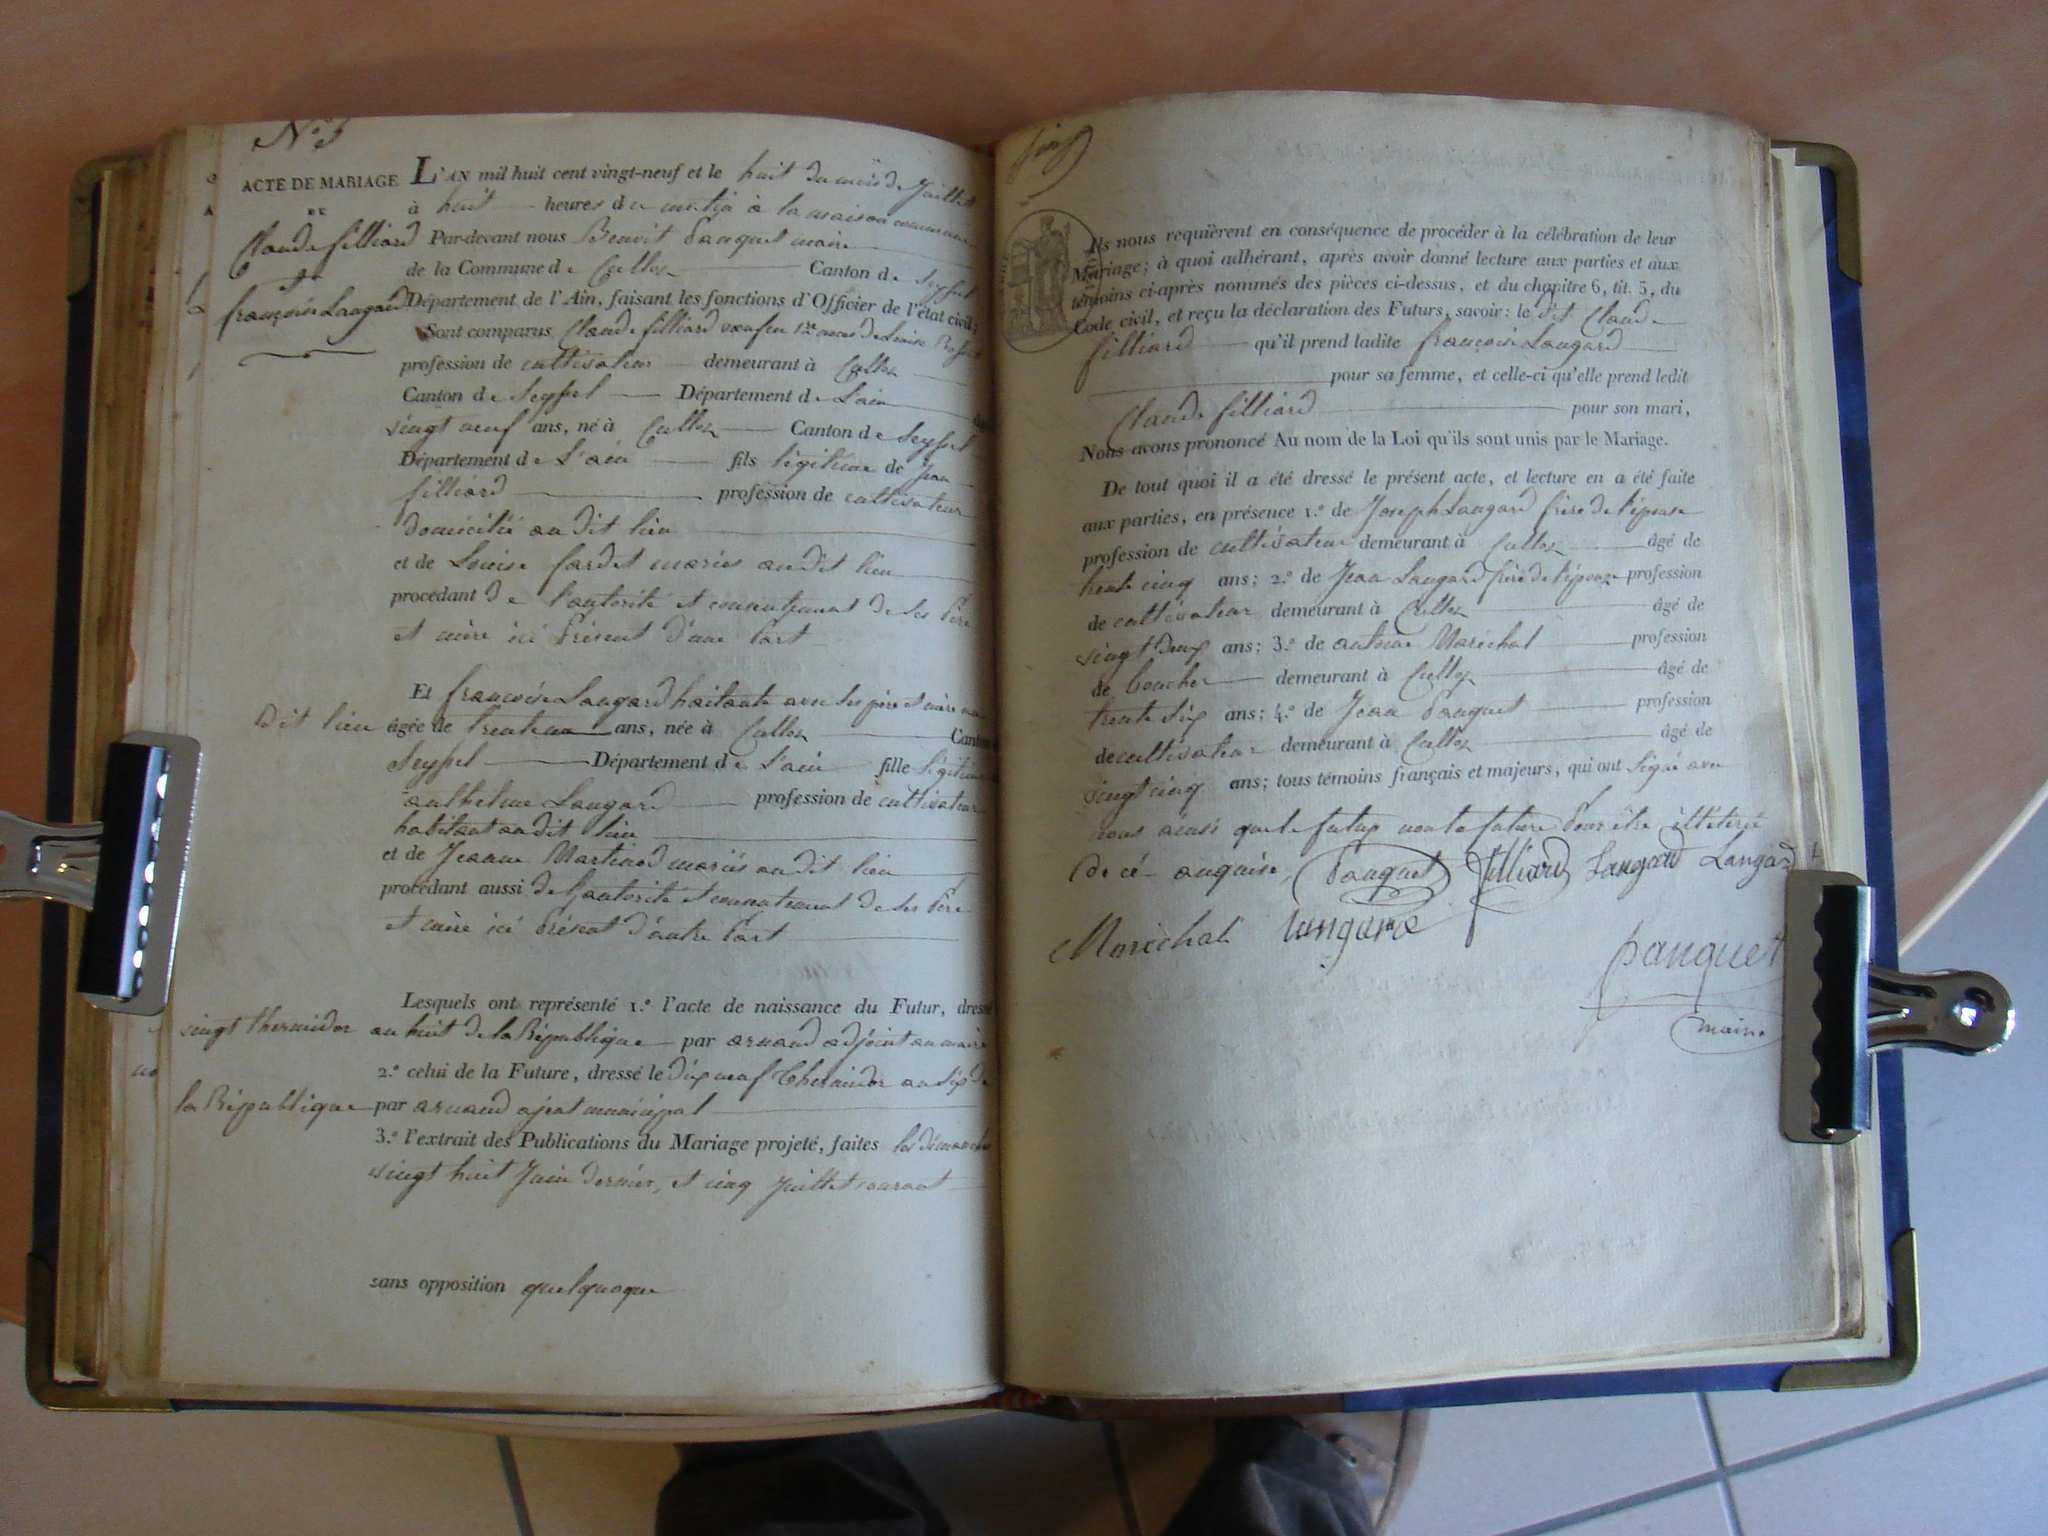 N.o 5
ACTE DE MARIAGE
DE
Claude filliard
et
françoise Langard
L'AN mil huit cent vingt-neuf et le huit du mois de Juillet
à huit heures du matin à la maison commune
Par-devant nous Benoit Pauquet maire
de la Commune de Culloz Canton de Seyssel
Département de l'Ain, faisant les fonctions d'Officier de l'état civil;
Sont comparus Claude filliard veuf en 1res noces de Louise
profession de cultivateur demeurant à Culloz
Canton de Seyssel Département de L'ain âgé
vingt neuf ans, né à Culloz Canton de Seyssel
Département de L'ain fils légitime de Jean
filliard profession de cultivateur
domicilié au dit lieu
et de Louise fardet mariés au dit lieu
procédant de l'autorité et consentement de ses Père
et mère ici Présent d'une Part
Et françoise Langard habitante avec ses père et mère au
Dit lieu âgée de trente un ans, née à Culloz Canton
Seyssel Département de L'ain fille légitime
anthelme Langard profession de cultivateur
habitant au dit lieu
et de Jeanne Martinod mariés au dit lieu
procédant aussi de l'autorité et consentement de ses Père
et mère ici Présent d'autre Part
Lesquels ont représenté 1.o l'acte de naissance du Futur, dressé
vingt thermidor an huit de la République par arnaud adjoint au maire
2.o celui de la Future, dressé le dix neuf thermidor an six de
la République par arnaud agent municipal
3.o l'extrait des Publications du Mariage projeté, faites les dimanches
vingt huit Juin dernier, et cinq Juillet courant
sans opposition quelquoque
Ils nous requièrent en conséquence de procéder à la célébration de leur
Mariage; à quoi adhérant, après avoir donné lecture aux parties et aux
témoins ci-après nommés des pièces ci-dessus, et du chapitre 6, tit. 5, du
Code civil, et reçu la déclaration des Futurs, savoir: le dit Claude
filliard qu'il prend ladite françoise Langard
pour sa femme, et celle-ci qu'elle prend ledit
Claude filliard pour son mari,
Nous avons prononcé Au nom de la Loi qu'ils sont unis par le Mariage.
De tout quoi il a été dressé le présent acte, et lecture en a été faite
aux parties, en présence 1.o de Joseph Langard frère de l'épouse
profession de cultivateur demeurant à Culloz âgé de
trente cinq ans; 2.o de Jean Langard frère de l'épouse profession
de cultivateur demeurant à Culloz âgé de
vingt deux ans; 3.o de antoine Maréchal profession
de boucher demeurant à Culloz âgé de
trente six ans; 4.o de Jean Pauquet profession
de cultivateur demeurant à Culloz âgé de
vingt cinq ans; tous témoins français et majeurs, qui ont signé avec
nous ainsi que le futur non la future Pour être illéteré
de ce enquise, Pauquet filliard Langard Langard
Maréchal Langard
pauquet
maire